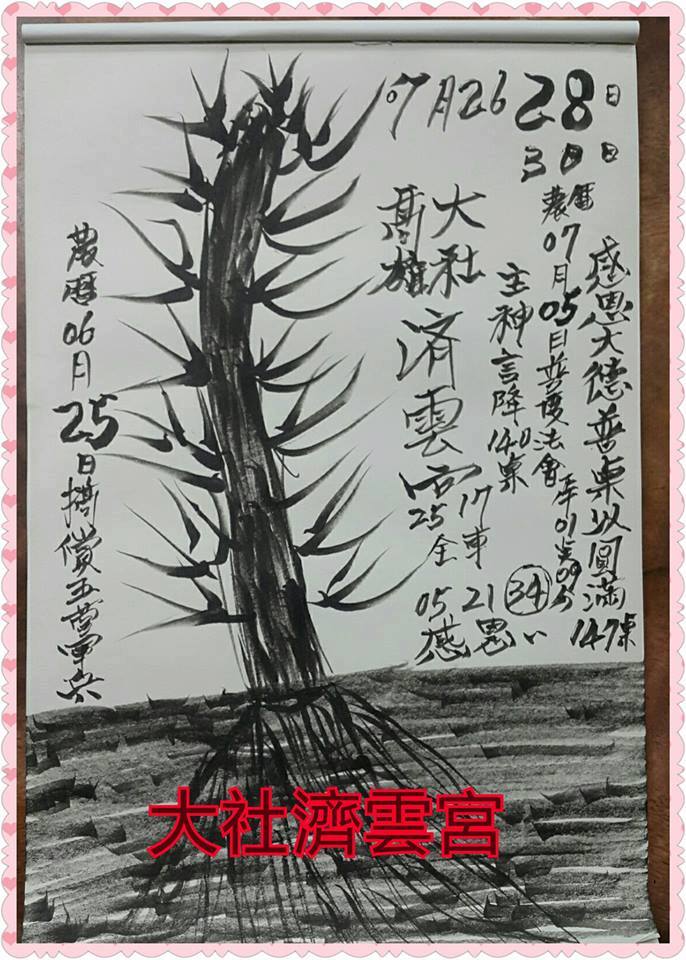 07月26 28日
30日
農曆07月05日普度法會
感恩大德善桌以圓滿147桌
主神言降140桌
大社
高雄
濟雲宮
17車
25全
05 21 34
感恩
農曆06月25日搞償五營軍兵
大社濟雲宮